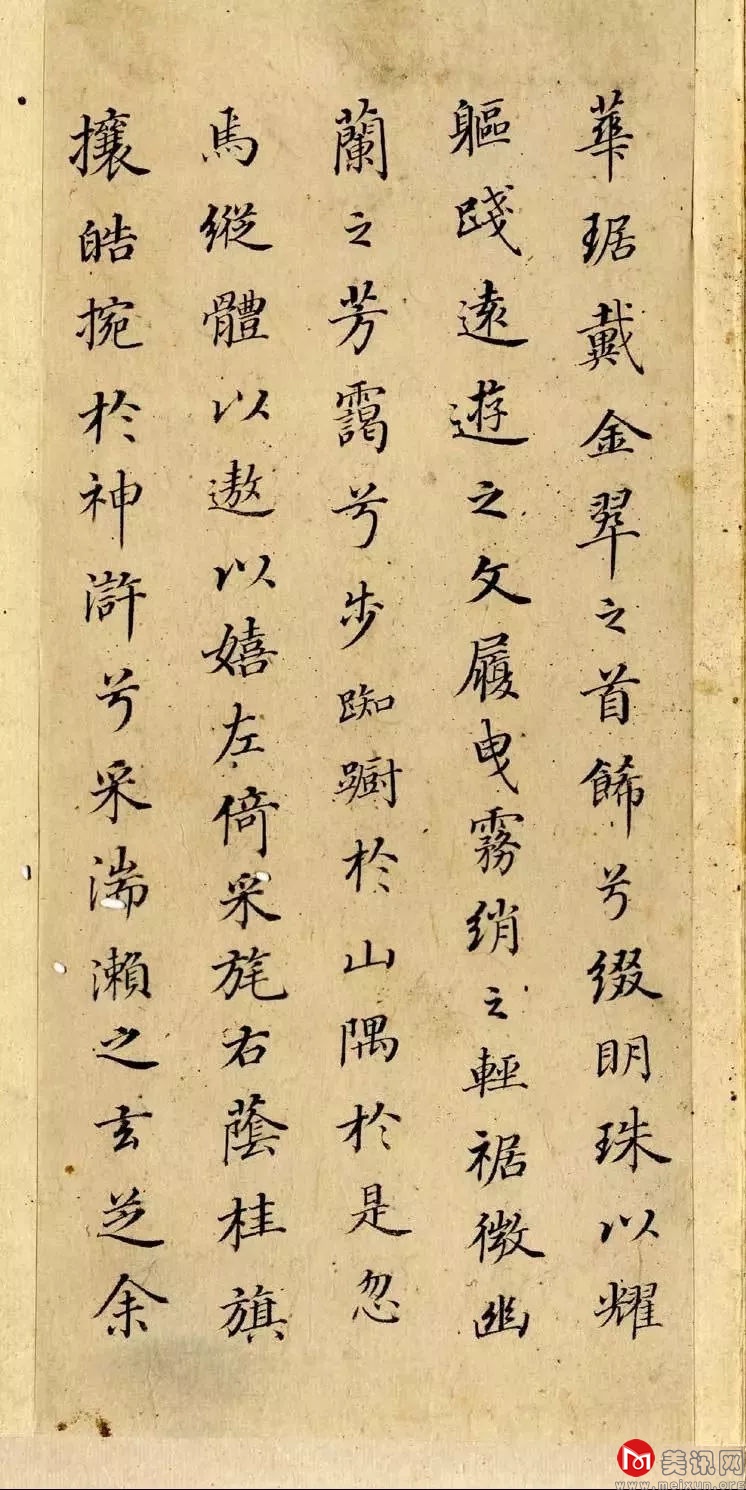 華琚戴金翠之首餙兮綴明珠以耀
軀踐遠遊之文履曳霧綃之輕裾微幽
蘭之芳靄兮步踟躕於山隅於是忽
焉縱體以遨以嬉左倚采旄右蔭桂旗
攘皓捥於神滸兮采湍瀨之玄芝余
美讯网
www.meixun.org